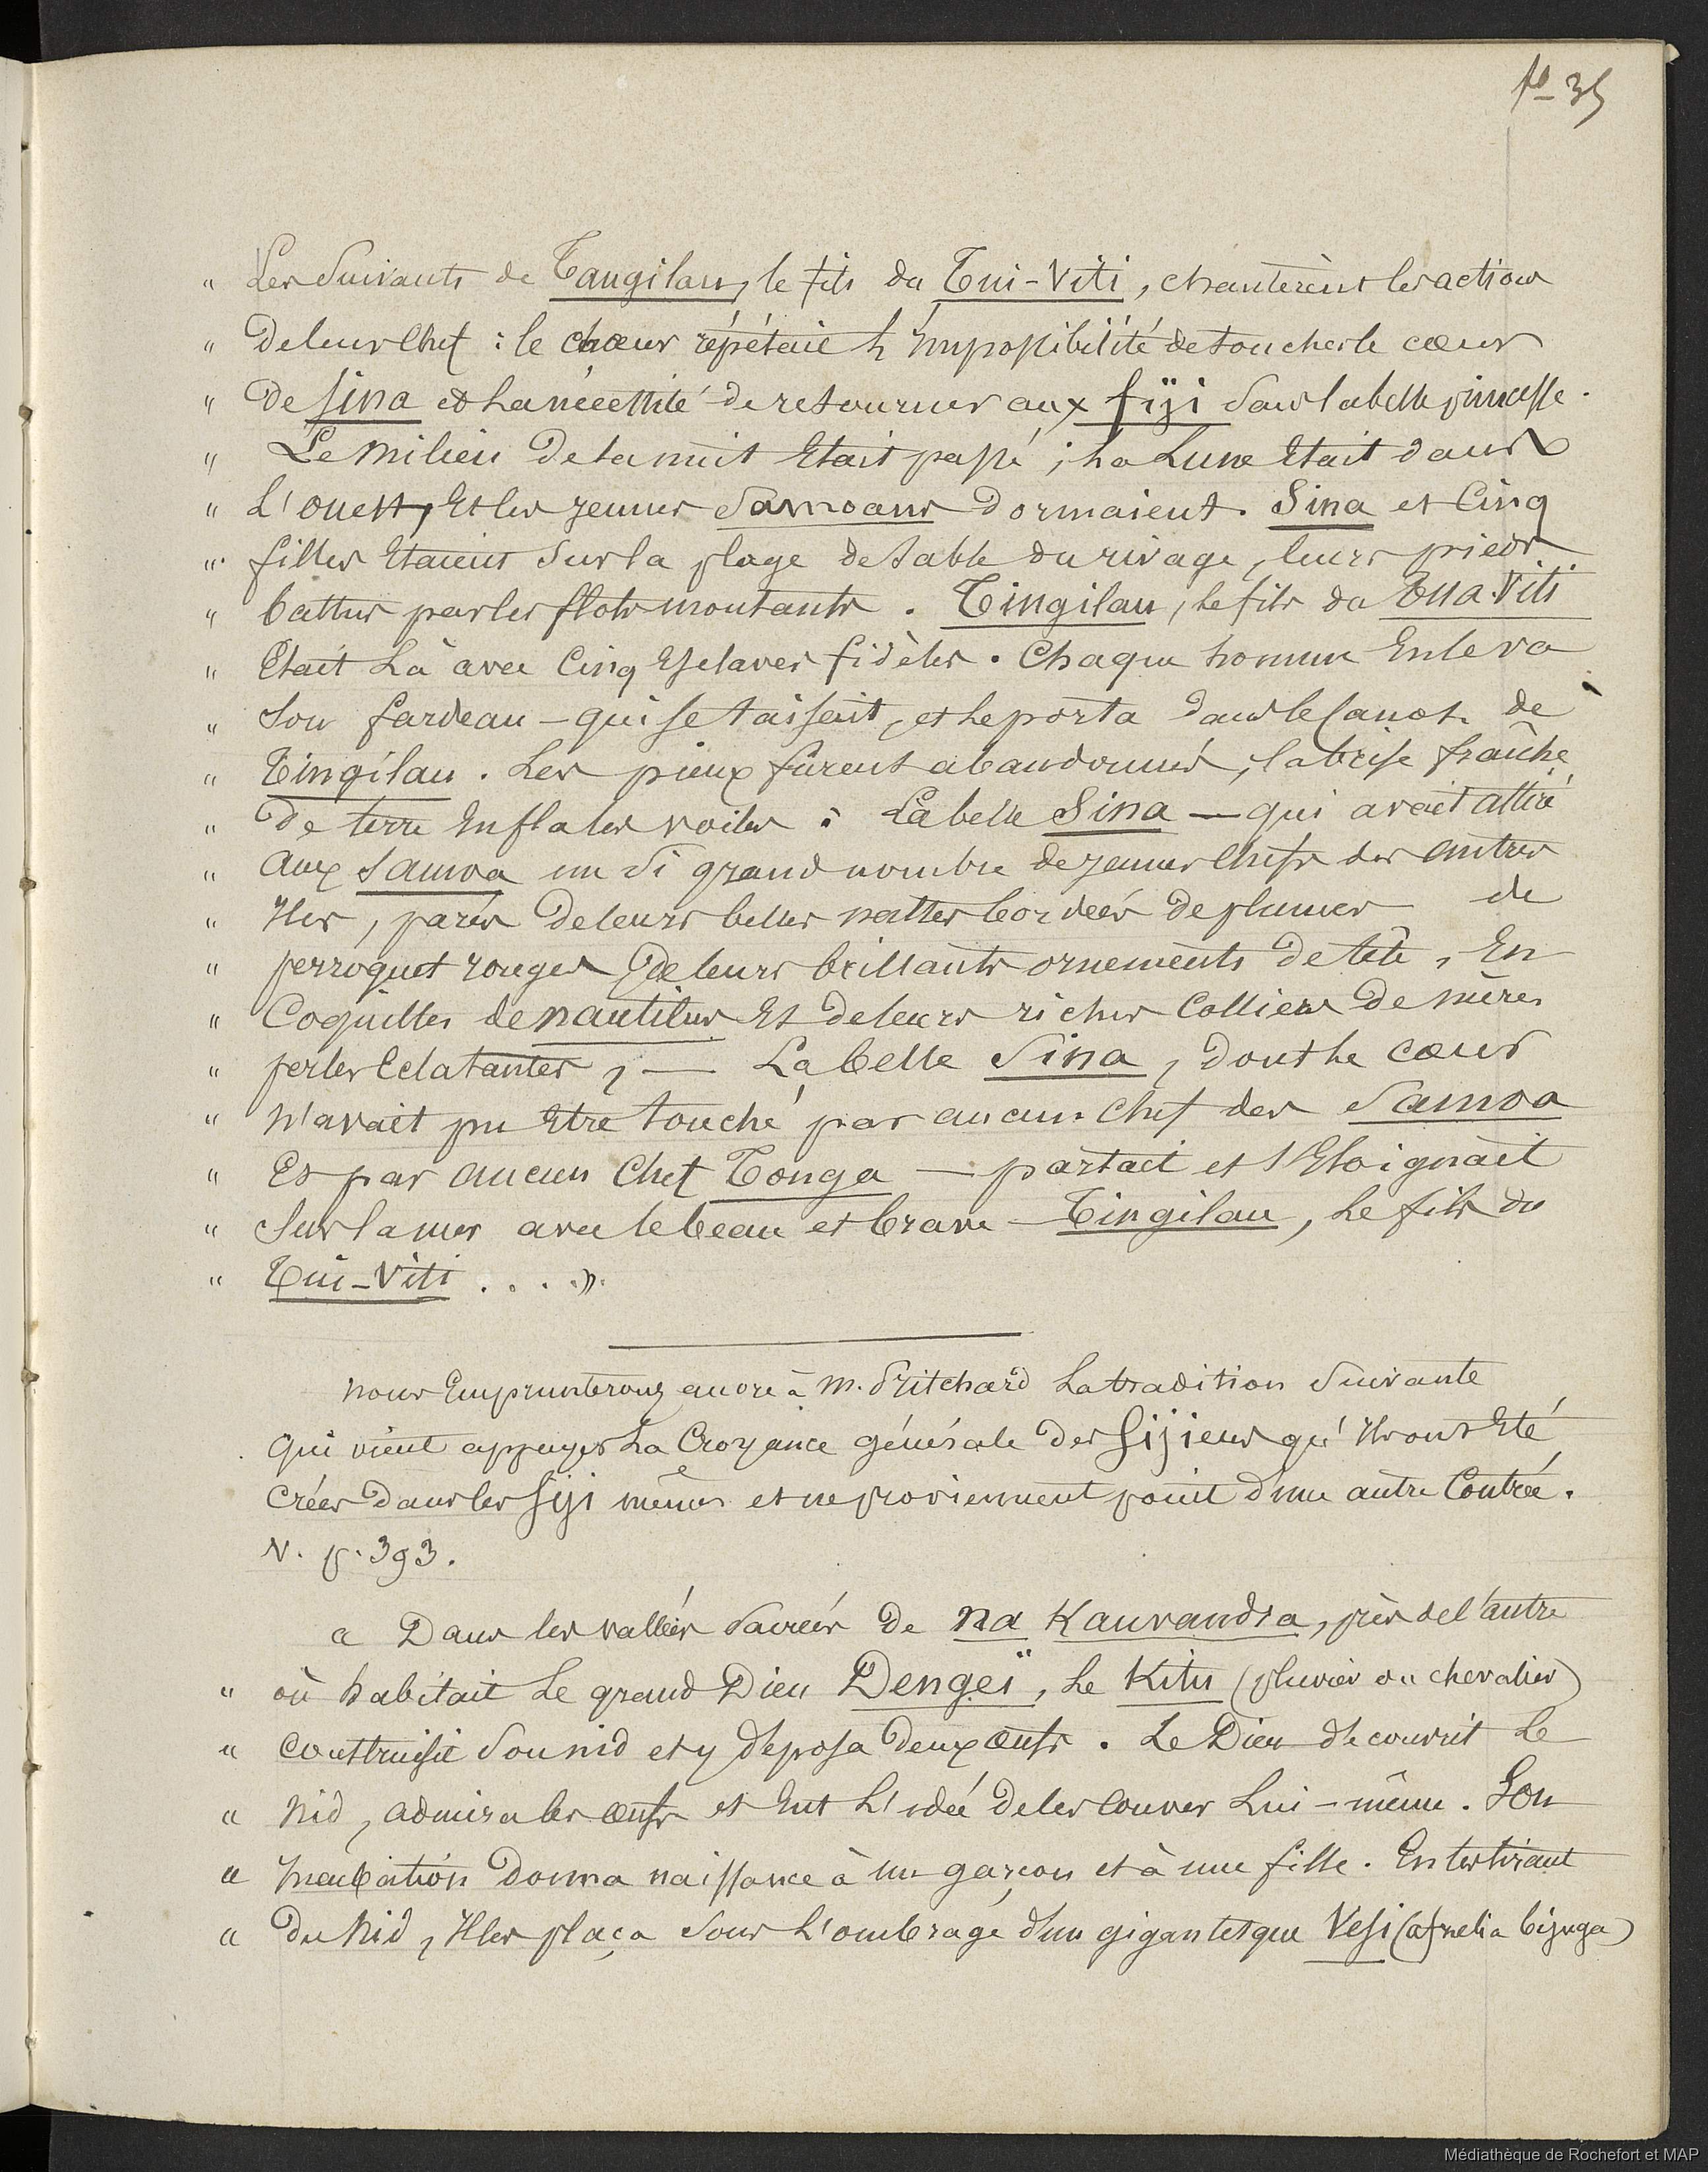 fo 35
" Les Suivants de Tangilau, le fils du Tui-Viti, chantèrent les actions
" de leur Chef : le choeur répétait l'impossibilité de toucher le coeur
" de Sina et la nécessité de retourner aux fiji sans la belle princesse.
" Le milieu de la nuit était passé ; la Lune était dans
" l'ouest, et les jeunes Samoans dormaient. Sina et Cinq
" filles étaient sur la plage de sable du rivage, leurs pieds
" battus par les flots montants. Tingilau, le fils du Tua-Viti
" était là avec Cinq Esclaves fidèles. Chaque homme enleva
" son fardeau – qui se taisait, et le porta dans le Canot de
" Tingilau. Les pieux furent abandonnés, la brise fraîche
" de terre enfla les voiles : La belle Sina — qui avait attiré
" aux Samoa un si grand nombre de jeunes chefs des autres
" Iles, parés de leurs belles nattes bordées de plumes de
" perroquet rouges, de leurs brillants ornements de tête, en
" Coquilles de nautilus et de leurs riches Colliers de mères
" perles éclatantes, — La belle Sina, dont le coeur
" n'avait pu être touché par aucun chef des Samoa
" et par aucun Chef Tonga — partait et s'éloignait
" sur la mer avec le beau et brave Tingilau, le fils du
" Tui-Viti . . . . ".
nous emprunterons encore à M. Pritchard la tradition suivante
qui vient appuyer la Croyance générale des Fijiens qu'ils ont été
créés dans les Fiji mêmes et ne proviennent point d'une autre Contrée.
V. p. 393.
" Dans les vallées sacrées de Na Kauvandra, près de l'antre
" où habitait le grand Dieu Dengeï, le Kitu (pluvier ou chevalier)
" construisit son nid et y déposa deux oeufs. Le Dieu découvrit le
" nid, admira les oeufs et eut l'idée de les couver lui-même. Son
" incubation donna naissance à un garçon et à une fille. En les tirant
" du nid, il les plaça sous l'ombrage d'un gigantesque Vesi (afzelia bijuga)